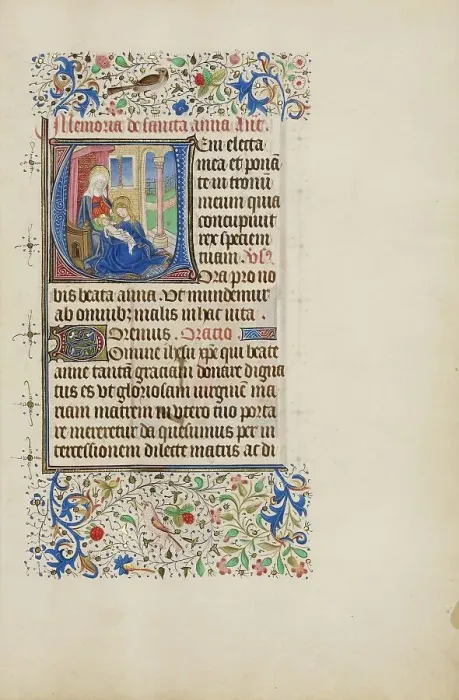 Memoria de sancta anna Ant'.
Veni electa
mea et ponā
te in tronū
meum quia
concupiuit
rex speciem
tuam. Vs'.
Ora pro no
bis beata anna. Vt mundemur
ab omnibz malis in hac uita.
Oremus. Oracio
Domine ihesu xpe qui beate
anne tantā graciam donare digna
tus es vt gloriosam uirginē ma
riam matrem in vtero tuo porta
re mereretur da quesumus per in
tercessionem dilecte matris ac di